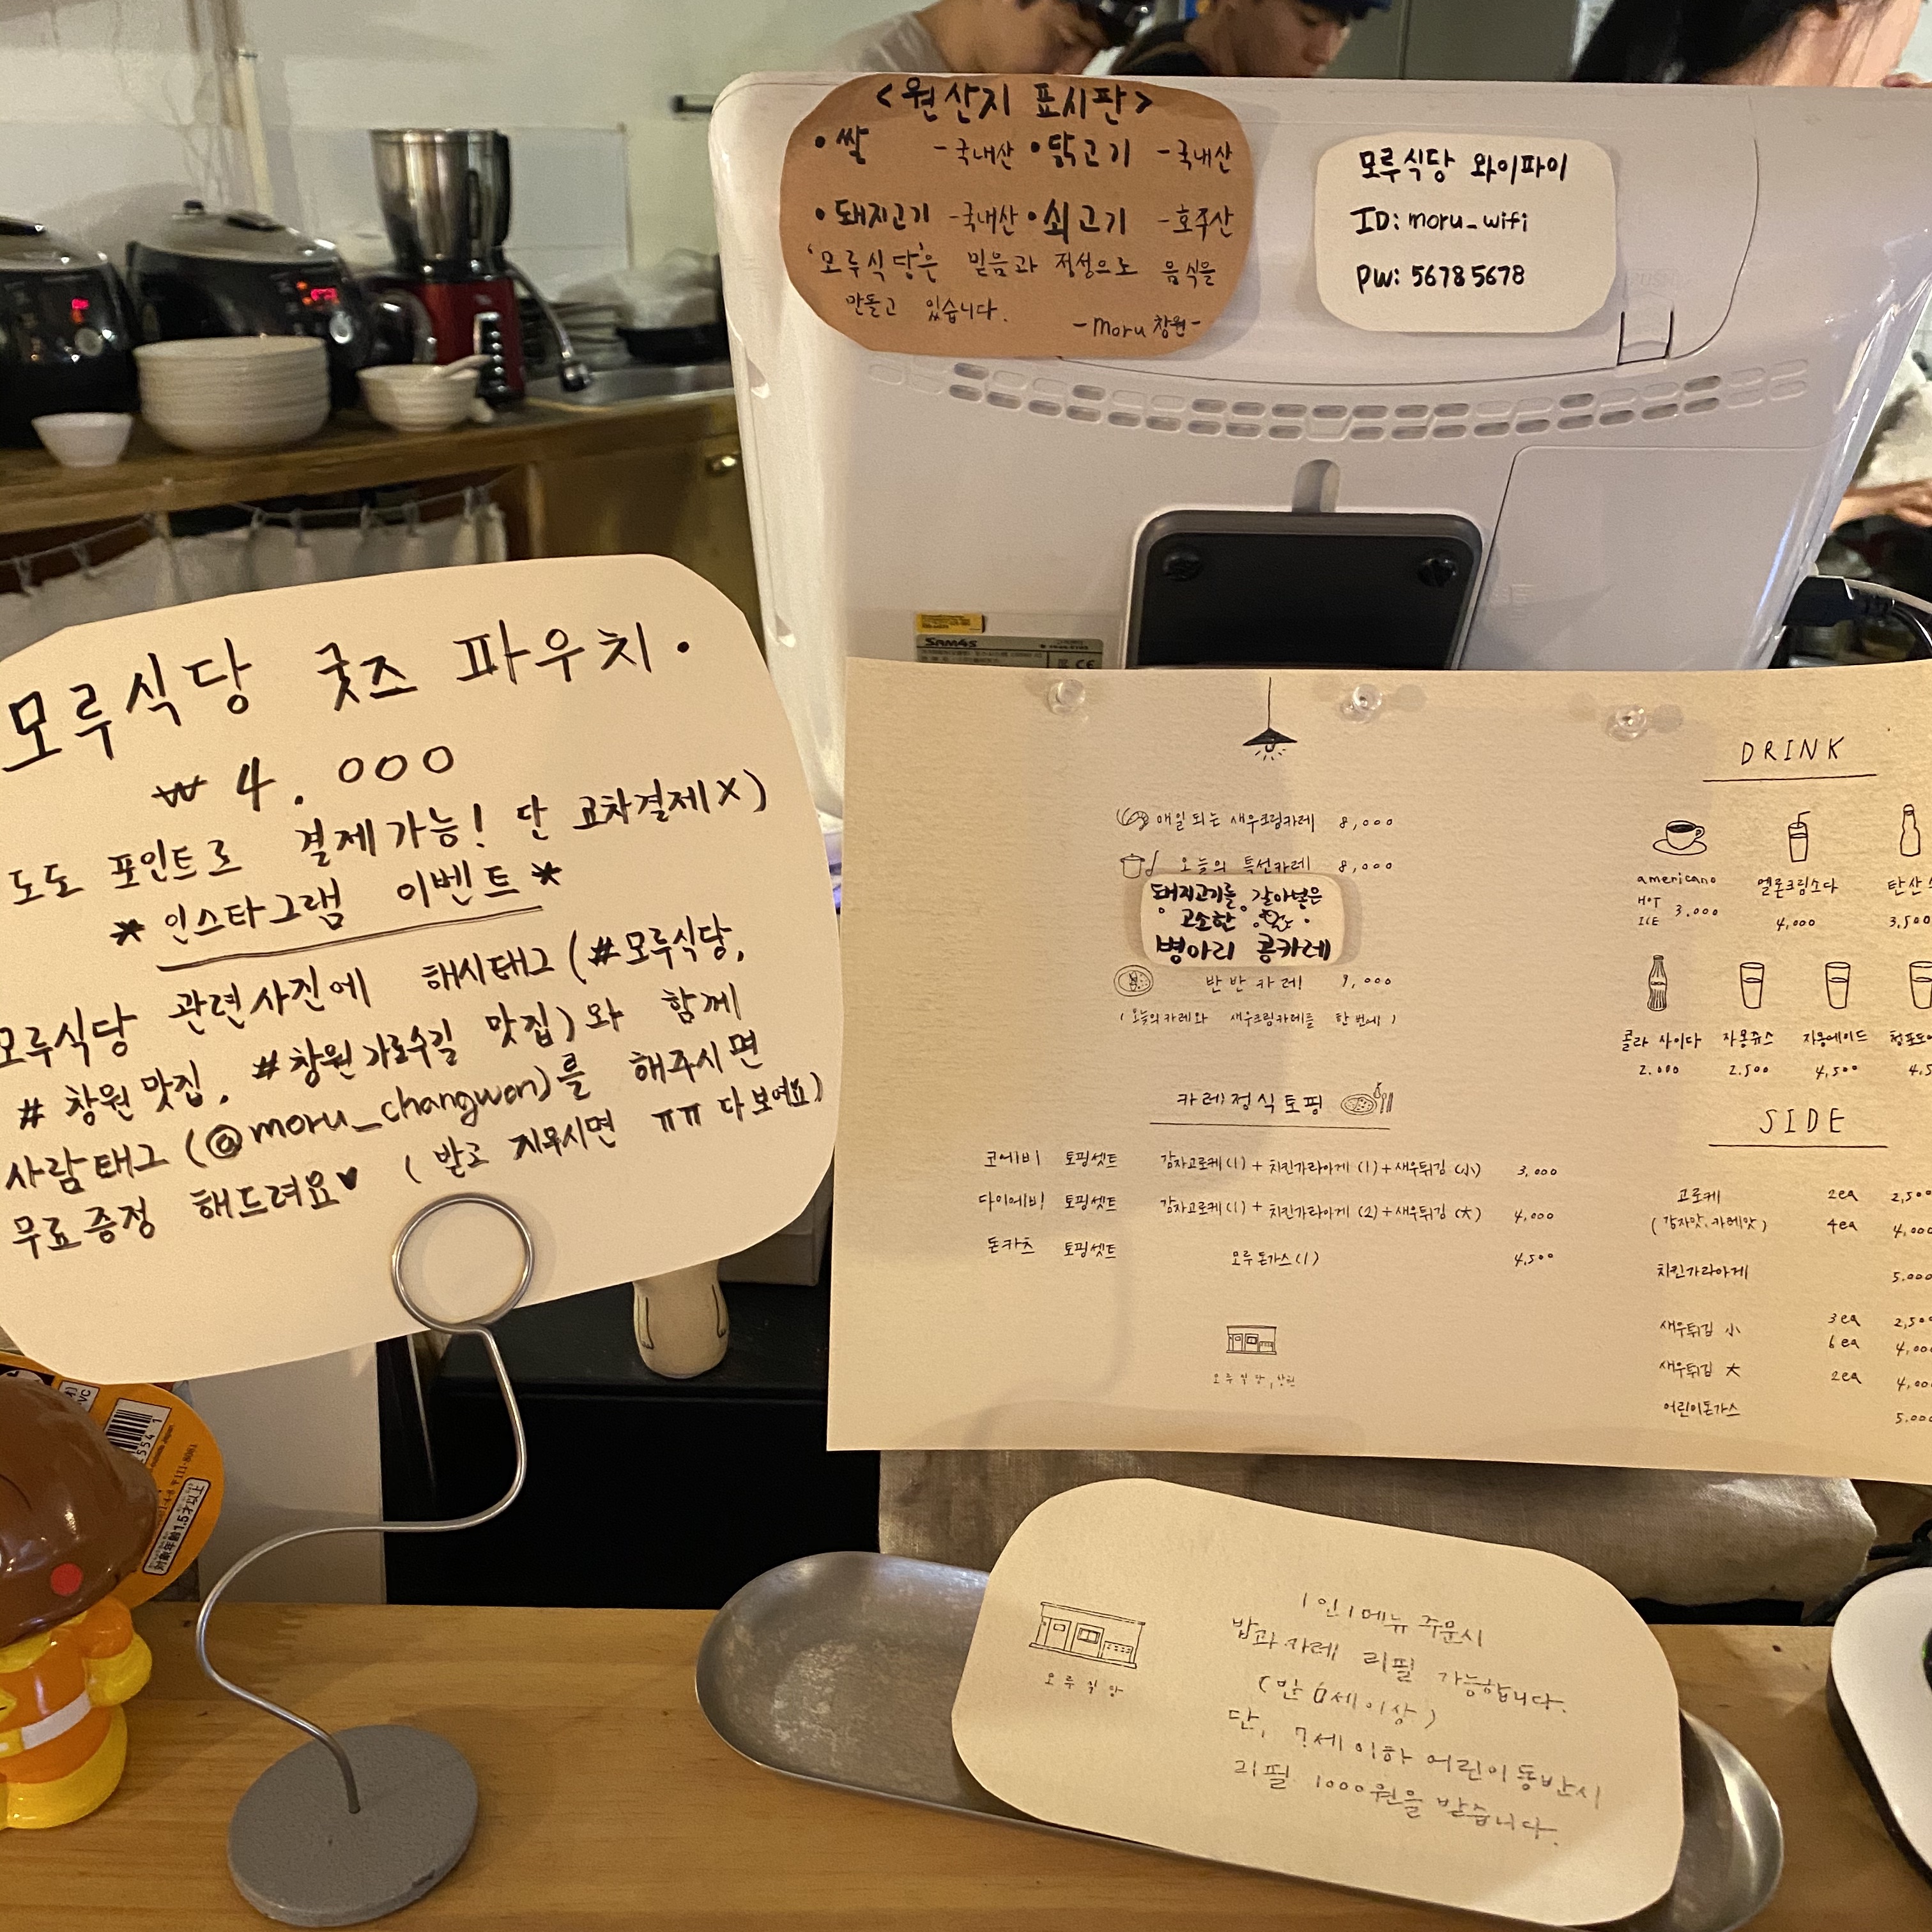 <원산지 표시판>
•쌀 -국내산 •닭고기 -국내산
•돼지고기 -국내산 •쇠고기 -호주산
'모루식당'은 믿음과 정성으로 음식을
만들고 있습니다.
-Moru 창원-
모루식당 와이파이
ID: moru_wifi
PW: 56785678
모루식당 굿즈 파우치.
₩ 4.000
도도 포인트로 결제가능! 단 교차결제X)
* 인스타그램 이벤트 *
모루식당 관련사진에 해시태그(#모루식당,
# 창원맛집, #창원가로수길 맛집)와 함께
사람태그(@moru_changwon)를 해주시면
무료증정 해드려요♥ (받고 지우시면 ㅠㅠ 다보여요)
SAM4S
매일 되는 새우크림카레 8,000
오늘의 특선카레 8,000
돼지고기를 갈아넣은
고소한
병아리 콩카레
반반카레 9,000
(오늘의카레와 새우크림카레를 한번에)
카레정식토핑
코에비 토핑셋트 감자고로케(1)+치킨가라아게(1)+새우튀김(小) 3,000
다이에비 토핑셋트 감자고로케(1)+치킨가라아게(2)+새우튀김(大) 4,000
돈카츠 토핑셋트 모루돈가스(1) 4,500
모루식당,창원
DRINK
americano 멜론크림소다 탄산
HOT
ICE 3.000 4,000 3,500
콜라 사이다 자몽쥬스 자몽에이드 청포도
2.000 2.500 4,500
SIDE
고로케 2ea 2,500
(감자맛,카레맛) 4ea 4,000
치킨가라아게 5.000
새우튀김 小 3ea 2,500
6ea 4,000
새우튀김 大 2ea 4,000
어린이돈가스 5.000
모루식당
1인1메뉴 주문시
밥과 카레 리필 가능합니다.
단, 7세이하 어린이동반시
리필 1000원을 받습니다.
対象年齢1.5才以上